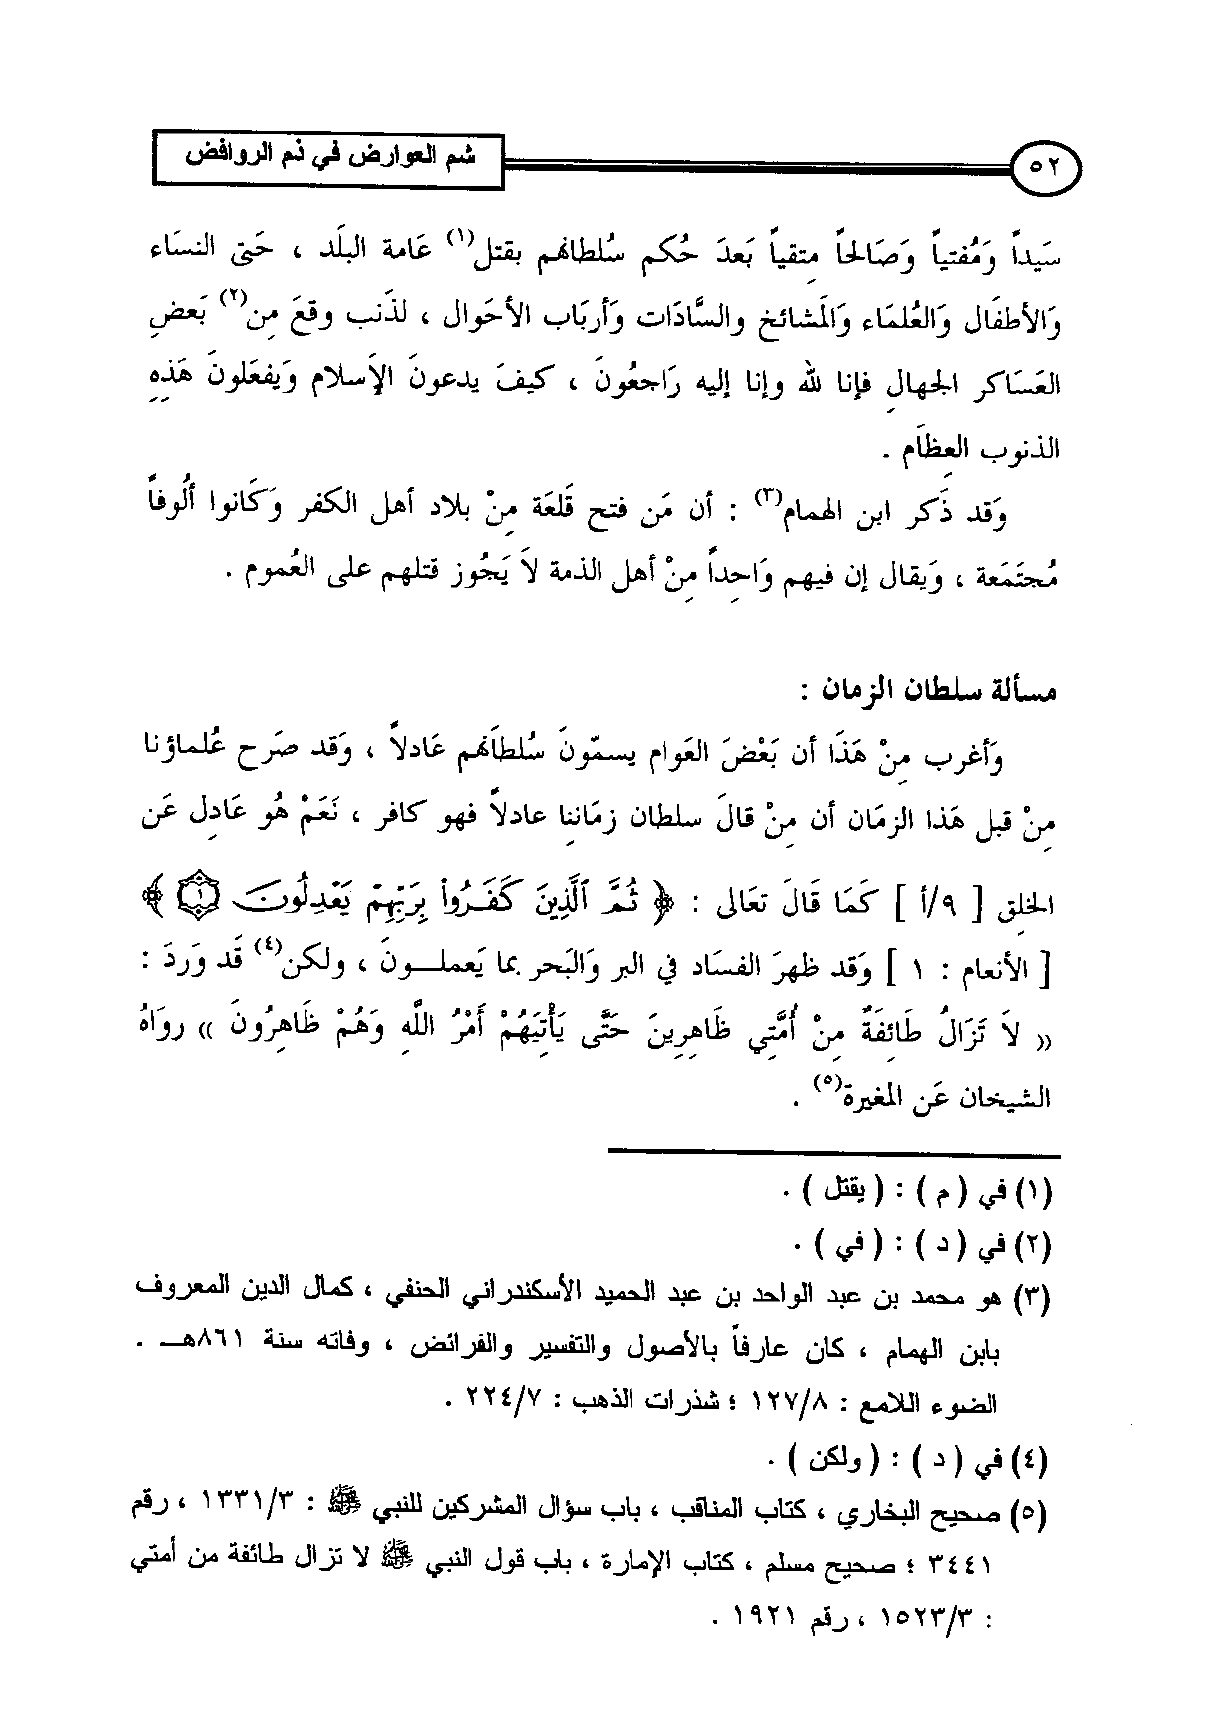 ٥٢
شم العوارض في ذم الروافض
سَيداً وَمُفتياً وَصَالحاً مِتقياً بَعدَ حُكم سُلطانهم بقتل(١) عَامة البلَد ، حَتى النسَاء
وَالأطفَال وَالعُلمَاء وَالمَشائخ والسَّادَات وَأربَاب الأحَوال ، لذَنب وقعَ مِن(٢) بَعضِ
العَسَاكر الجهالِ فإنا لله وإنا إليه رَاجعُونَ ، كيفَ يدعونَ الإَسلام وَيفعَلونَ هَذِهِ
الذنوب العِظاَم .
وَقد ذَكر ابن الهمام(٣) : أن مَن فتح قَلعَة مِنْ بلاد أهل الكفر وَكَانوا ألُوفاً
مُجتَمَعة ، وَيقال إن فيهم وَاحِداً مِنْ أهل الذمة لاَ يَجُوز قتلهم على العُموم .
مسألة سلطان الزمان :
وَأغرب مِنْ هَذَا أن بَعْضَ العَوام يسمّونَ سُلطاَنهم عَادلاً ، وَقد صَرح عُلماؤنا
مِنْ قبل هَذا الزمَان أن مِنْ قالَ سلطان زمَانِنا عادلاً فهو كافر ، نَعَمْ هُو عَادِل عَن
الخلِق [ ٩/أ ] كَمَا قَالَ تعَالى : ﴿ ثُمَّ ٱلَّذِينَ كَفَرُواْ بِرَبِّهِمْ يَعْدِلُونَ ١ ﴾
[ الأنعام : ١ ] وَقد ظهرَ الفسَاد في البر وَالبَحر بما يَعملـــونَ ، ولكن(٤) قَد وَردَ :
« لاَ تَزَالُ طَائِفَةٌ مِنْ أُمَّتِي ظَاهِرِينَ حَتَّى يَأْتِيَهُمْ أَمْرُ اللَّهِ وَهُمْ ظَاهِرُونَ » روَاهُ
الشيخان عَن المغيرة(٥) .
(١) في ( م ) : ( يقتل ) .
(٢) في ( د ) : ( في ) .
(٣) هو محمد بن عبد الواحد بن عبد الحميد الأسكندراني الحنفي ، كمال الدين المعروف
بابن الهمام ، كان عارفاً بالأصول والتفسير والفرائض ، وفاته سنة ٨٦١هـــ .
الضوء اللامع : ١٢٧/٨ ؛ شذرات الذهب : ٢٢٤/٧ .
(٤) في ( د ) : ( ولكن ) .
(٥) صحيح البخاري ، كتاب المناقب ، باب سؤال المشركين للنبي ﷺ : ١٣٣١/٣ ، رقم
٣٤٤١ ؛ صحيح مسلم ، كتاب الإمارة ، باب قول النبي ﷺ لا تزال طائفة من أمتي
: ١٥٢٣/٣ ، رقم ١٩٢١ .